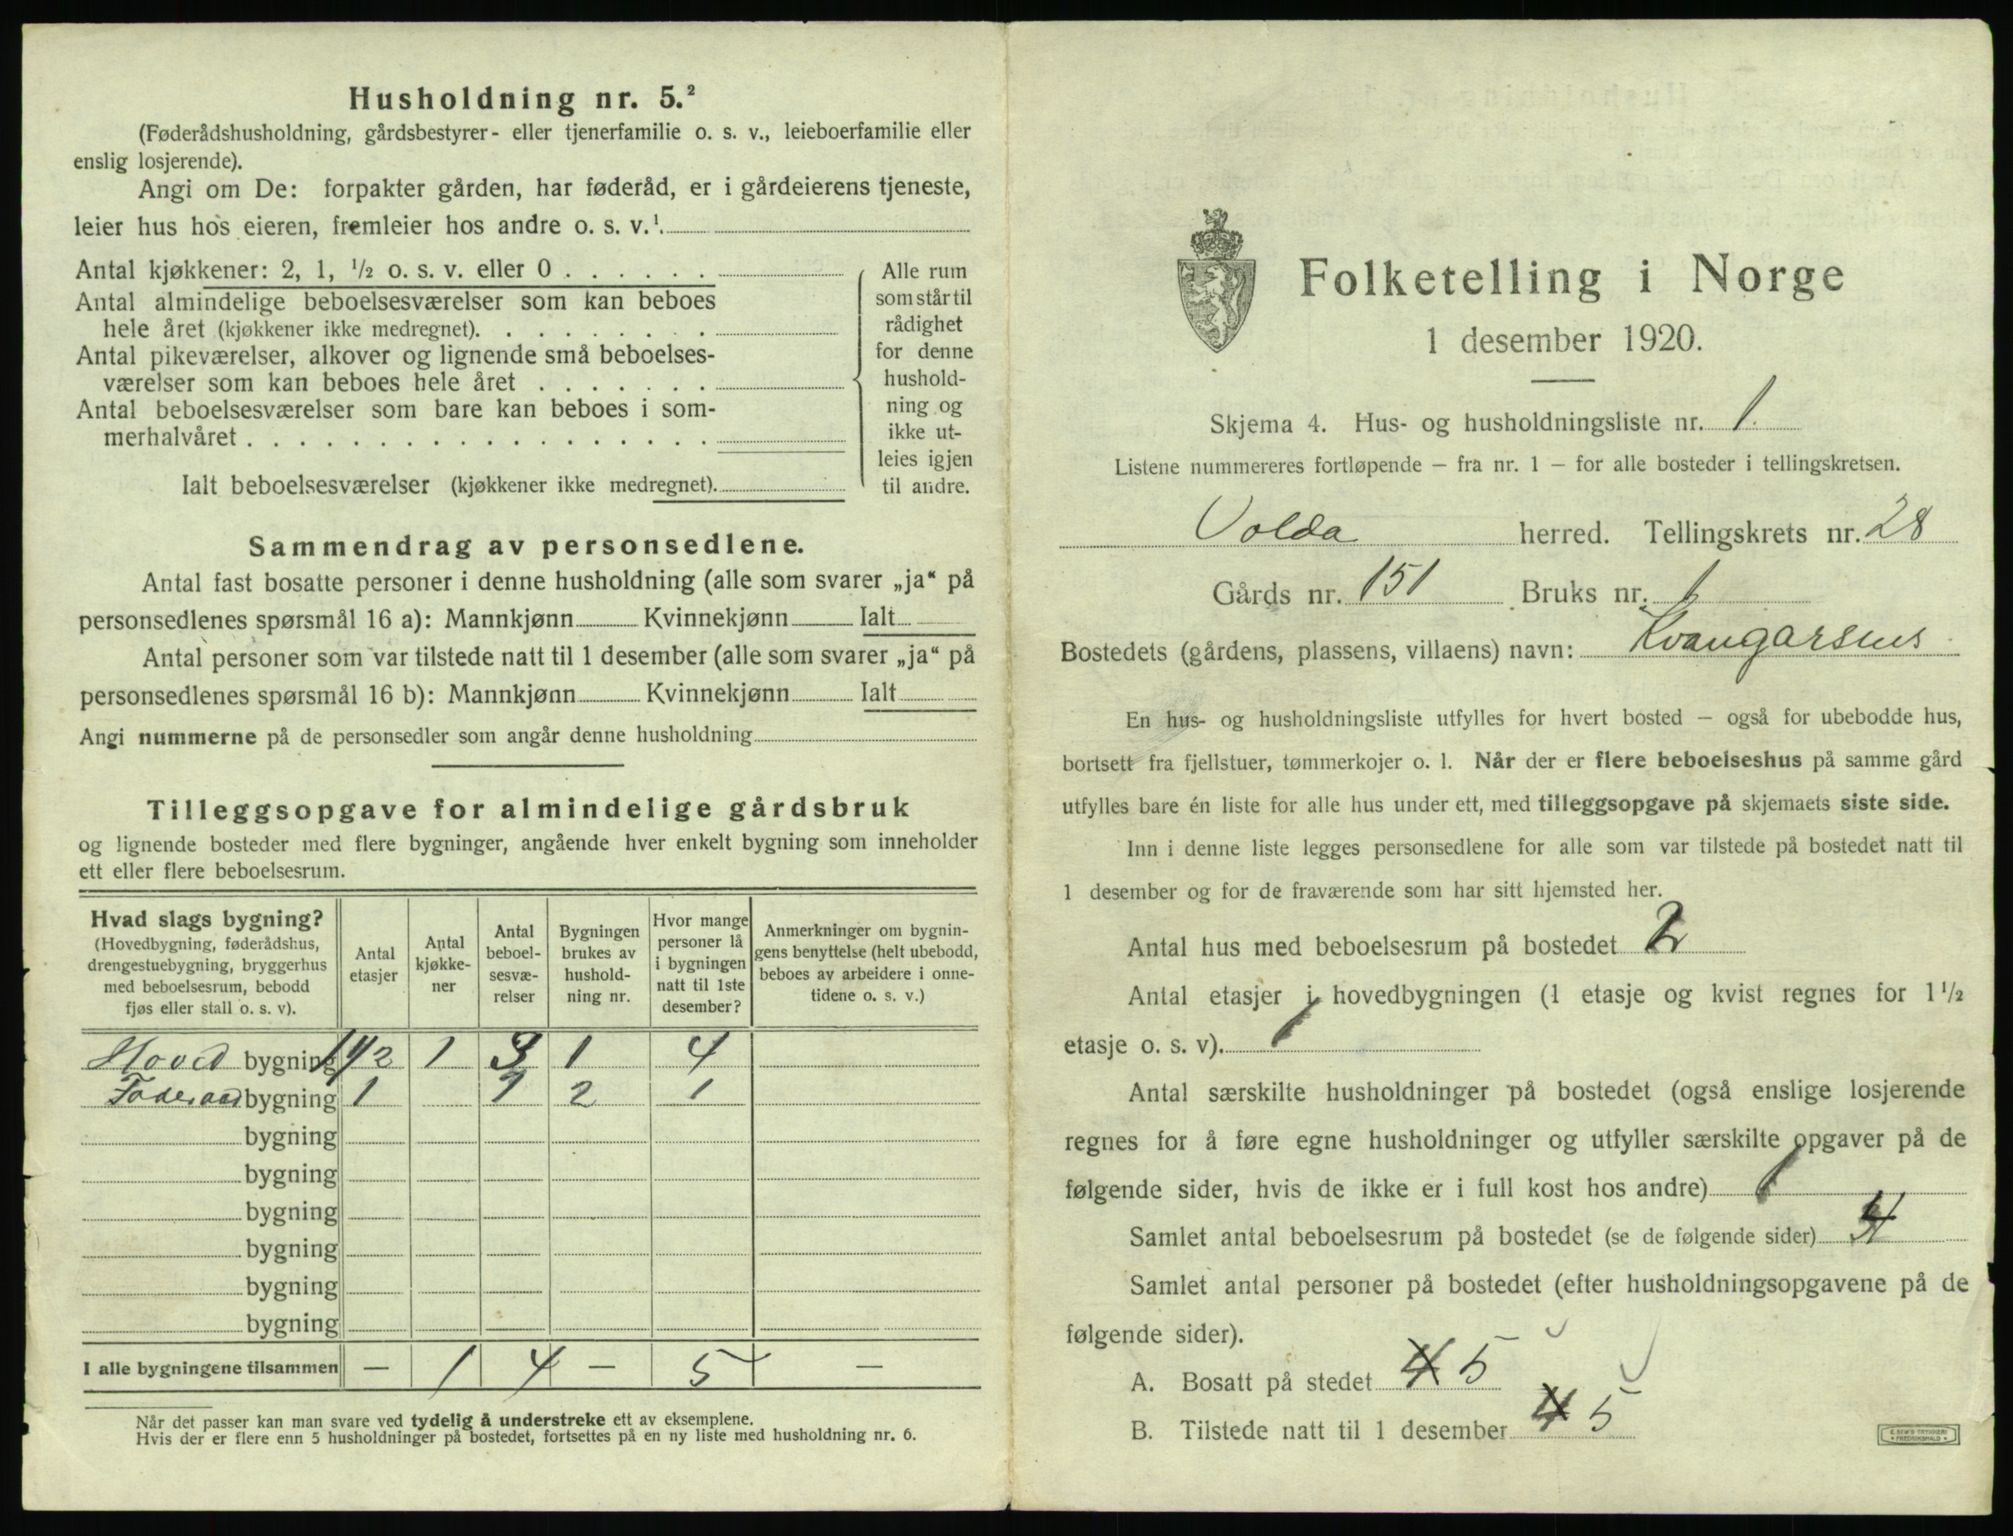 Husholdning nr. 5.²
(Føderådshusholdning, gårdsbestyrer- eller tjenerfamilie o. s. v., leieboerfamilie eller
enslig losjerende).
Angi om De: forpakter gården, har føderåd, er i gårdeierens tjeneste,
leier hus hos eieren, fremleier hos andre o. s. v.¹
Antal kjøkkener: 2, 1, ½ o. s. v. eller 0 . . . . . .
Antal almindelige beboelsesværelser som kan beboes
hele året (kjøkkener ikke medregnet). . . . . . . . .
Antal pikeværelser, alkover og lignende små beboelses-
værelser som kan beboes hele året . . . . . . .
Antal beboelsesværelser som bare kan beboes i som-
merhalvåret . . . . . . . . . . . . . . . . . .
Ialt beboelsesværelser (kjøkkener ikke medregnet).
Alle rum
som står til
rådighet
for denne
hushold-
ning og
ikke ut-
leies igjen
til andre.
Sammendrag av personsedlene.
Antal fast bosatte personer i denne husholdning (alle som svarer „ja“ på
personsedlenes spørsmål 16 a): Mannkjønn Kvinnekjønn Ialt
Antal personer som var tilstede natt til 1 desember (alle som svarer „ja“ på
personsedlenes spørsmål 16 b): Mannkjønn Kvinnekjønn Ialt
Angi nummerne på de personsedler som angår denne husholdning
Tilleggsopgave for almindelige gårdsbruk
og lignende bosteder med flere bygninger, angående hver enkelt bygning som inneholder
ett eller flere beboelsesrum.
Hvad slags bygning?
(Hovedbygning, føderådshus,
drengestuebygning, bryggerhus
med beboelsesrum, bebodd
fjøs eller stall o. s. v).
Antal
etasjer
Antal
kjøkke-
ner
Antal
beboel-
sesvæ-
relser
Bygningen
brukes av
hushold-
ning nr.
Hvor mange
personer lå
i bygningen
natt til 1ste
desember?
Anmerkninger om bygnin-
gens benyttelse (helt ubebodd,
beboes av arbeidere i onne-
tidene o. s. v.)
Hoved bygning 1 1/2 1 3 1 4
Føderaad bygning 1 1 2 1
bygning
bygning
bygning
bygning
bygning
bygning
I alle bygningene tilsammen — 1 4 — 5 —
Når det passer kan man svare ved tydelig å understreke ett av eksemplene.
Hvis der er flere enn 5 husholdninger på bostedet, fortsettes på en ny liste med husholdning nr. 6.
Folketelling i Norge
1 desember 1920.
Skjema 4. Hus- og husholdningsliste nr. 1.
Listene nummereres fortløpende – fra nr. 1 – for alle bosteder i tellingskretsen.
Volda herred. Tellingskrets nr. 28
Gårds nr. 151 Bruks nr. 1
Bostedets (gårdens, plassens, villaens) navn:
En hus- og husholdningsliste utfylles for hvert bosted – også for ubebodde hus,
bortsett fra fjellstuer, tømmerkojer o. l. Når der er flere beboelseshus på samme gård
utfylles bare én liste for alle hus under ett, med tilleggsopgave på skjemaets siste side.
Inn i denne liste legges personsedlene for alle som var tilstede på bostedet natt til
1 desember og for de fraværende som har sitt hjemsted her.
Antal hus med beboelsesrum på bostedet 2
Antal etasjer i hovedbygningen (1 etasje og kvist regnes for 1½
etasje o. s. v). 1
Antal særskilte husholdninger på bostedet (også enslige losjerende
regnes for å føre egne husholdninger og utfyller særskilte opgaver på de
følgende sider, hvis de ikke er i full kost hos andre) 1
Samlet antal beboelsesrum på bostedet (se de følgende sider) 4
Samlet antal personer på bostedet (efter husholdningsopgavene på de
følgende sider).
A. Bosatt på stedet 4 5
B. Tilstede natt til 1 desember 4 5